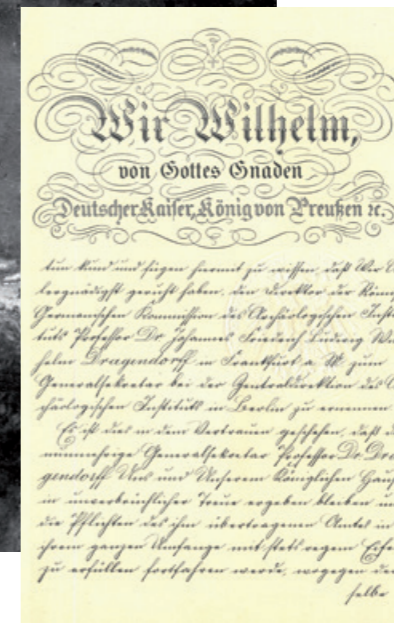 Wir Wilhelm,
von Gottes Gnaden
Deutscher Kaiser, König von Preußen ꝛc.
tun kund und fügen hiermit zu wissen, daß Wir
lergnädigst geruht haben, den Direktor der Römisch
Germanischen Kommission des Archäologischen Insti
tuts Professor Dr. Johannes Friedrich Ludwig Wil
helm Dragendorff in Frankfurt a. M. zum
Generalsekretar bei der Zentraldirektion des
chäologischen Instituts in Berlin zu ernennen
Es ist dies in dem Vertrauen geschehen, daß
nunmehrige Generalsekretar Professor Dr. Dra
gendorff Uns und Unserem Königlichen Hause
in unverbrüchlicher Treue ergeben bleiben
die Pflichten des ihm übertragenen Amtes in
ihrem ganzen Umfange mit stets regem Eifer
zu erfüllen fortfahren werde, wogegen
selbe